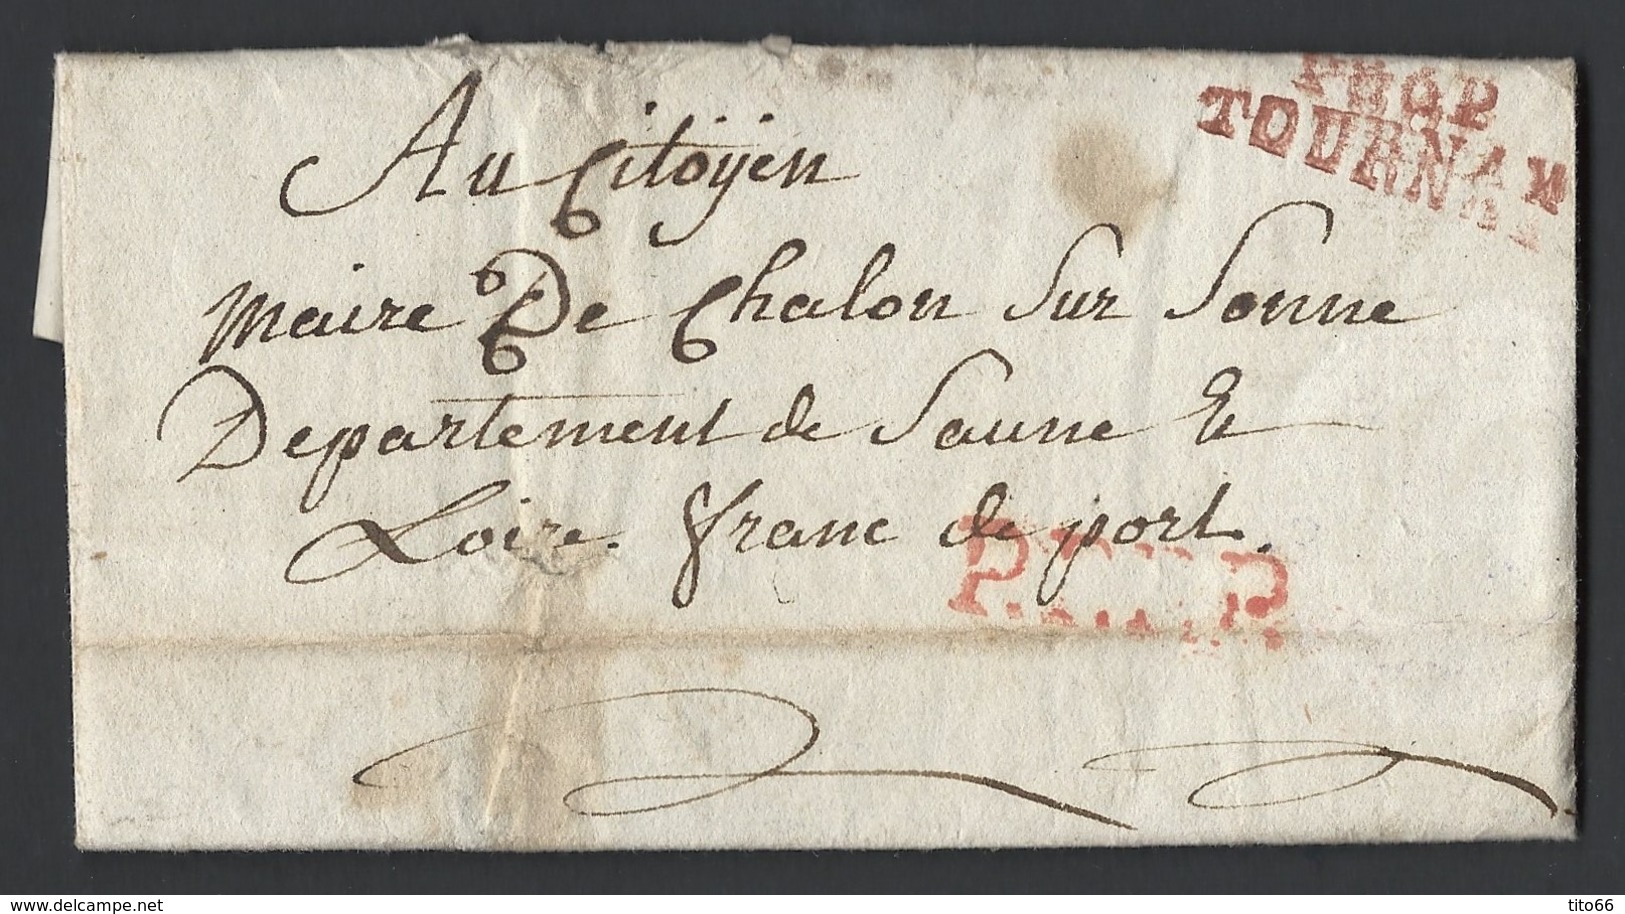 P86P
TOURNAY
Au Citoÿen
maire De Chalon Sur Sonne
Departement de Saune Et
Loire. franc de port.
P. P.
www.delcampe.net
tito66